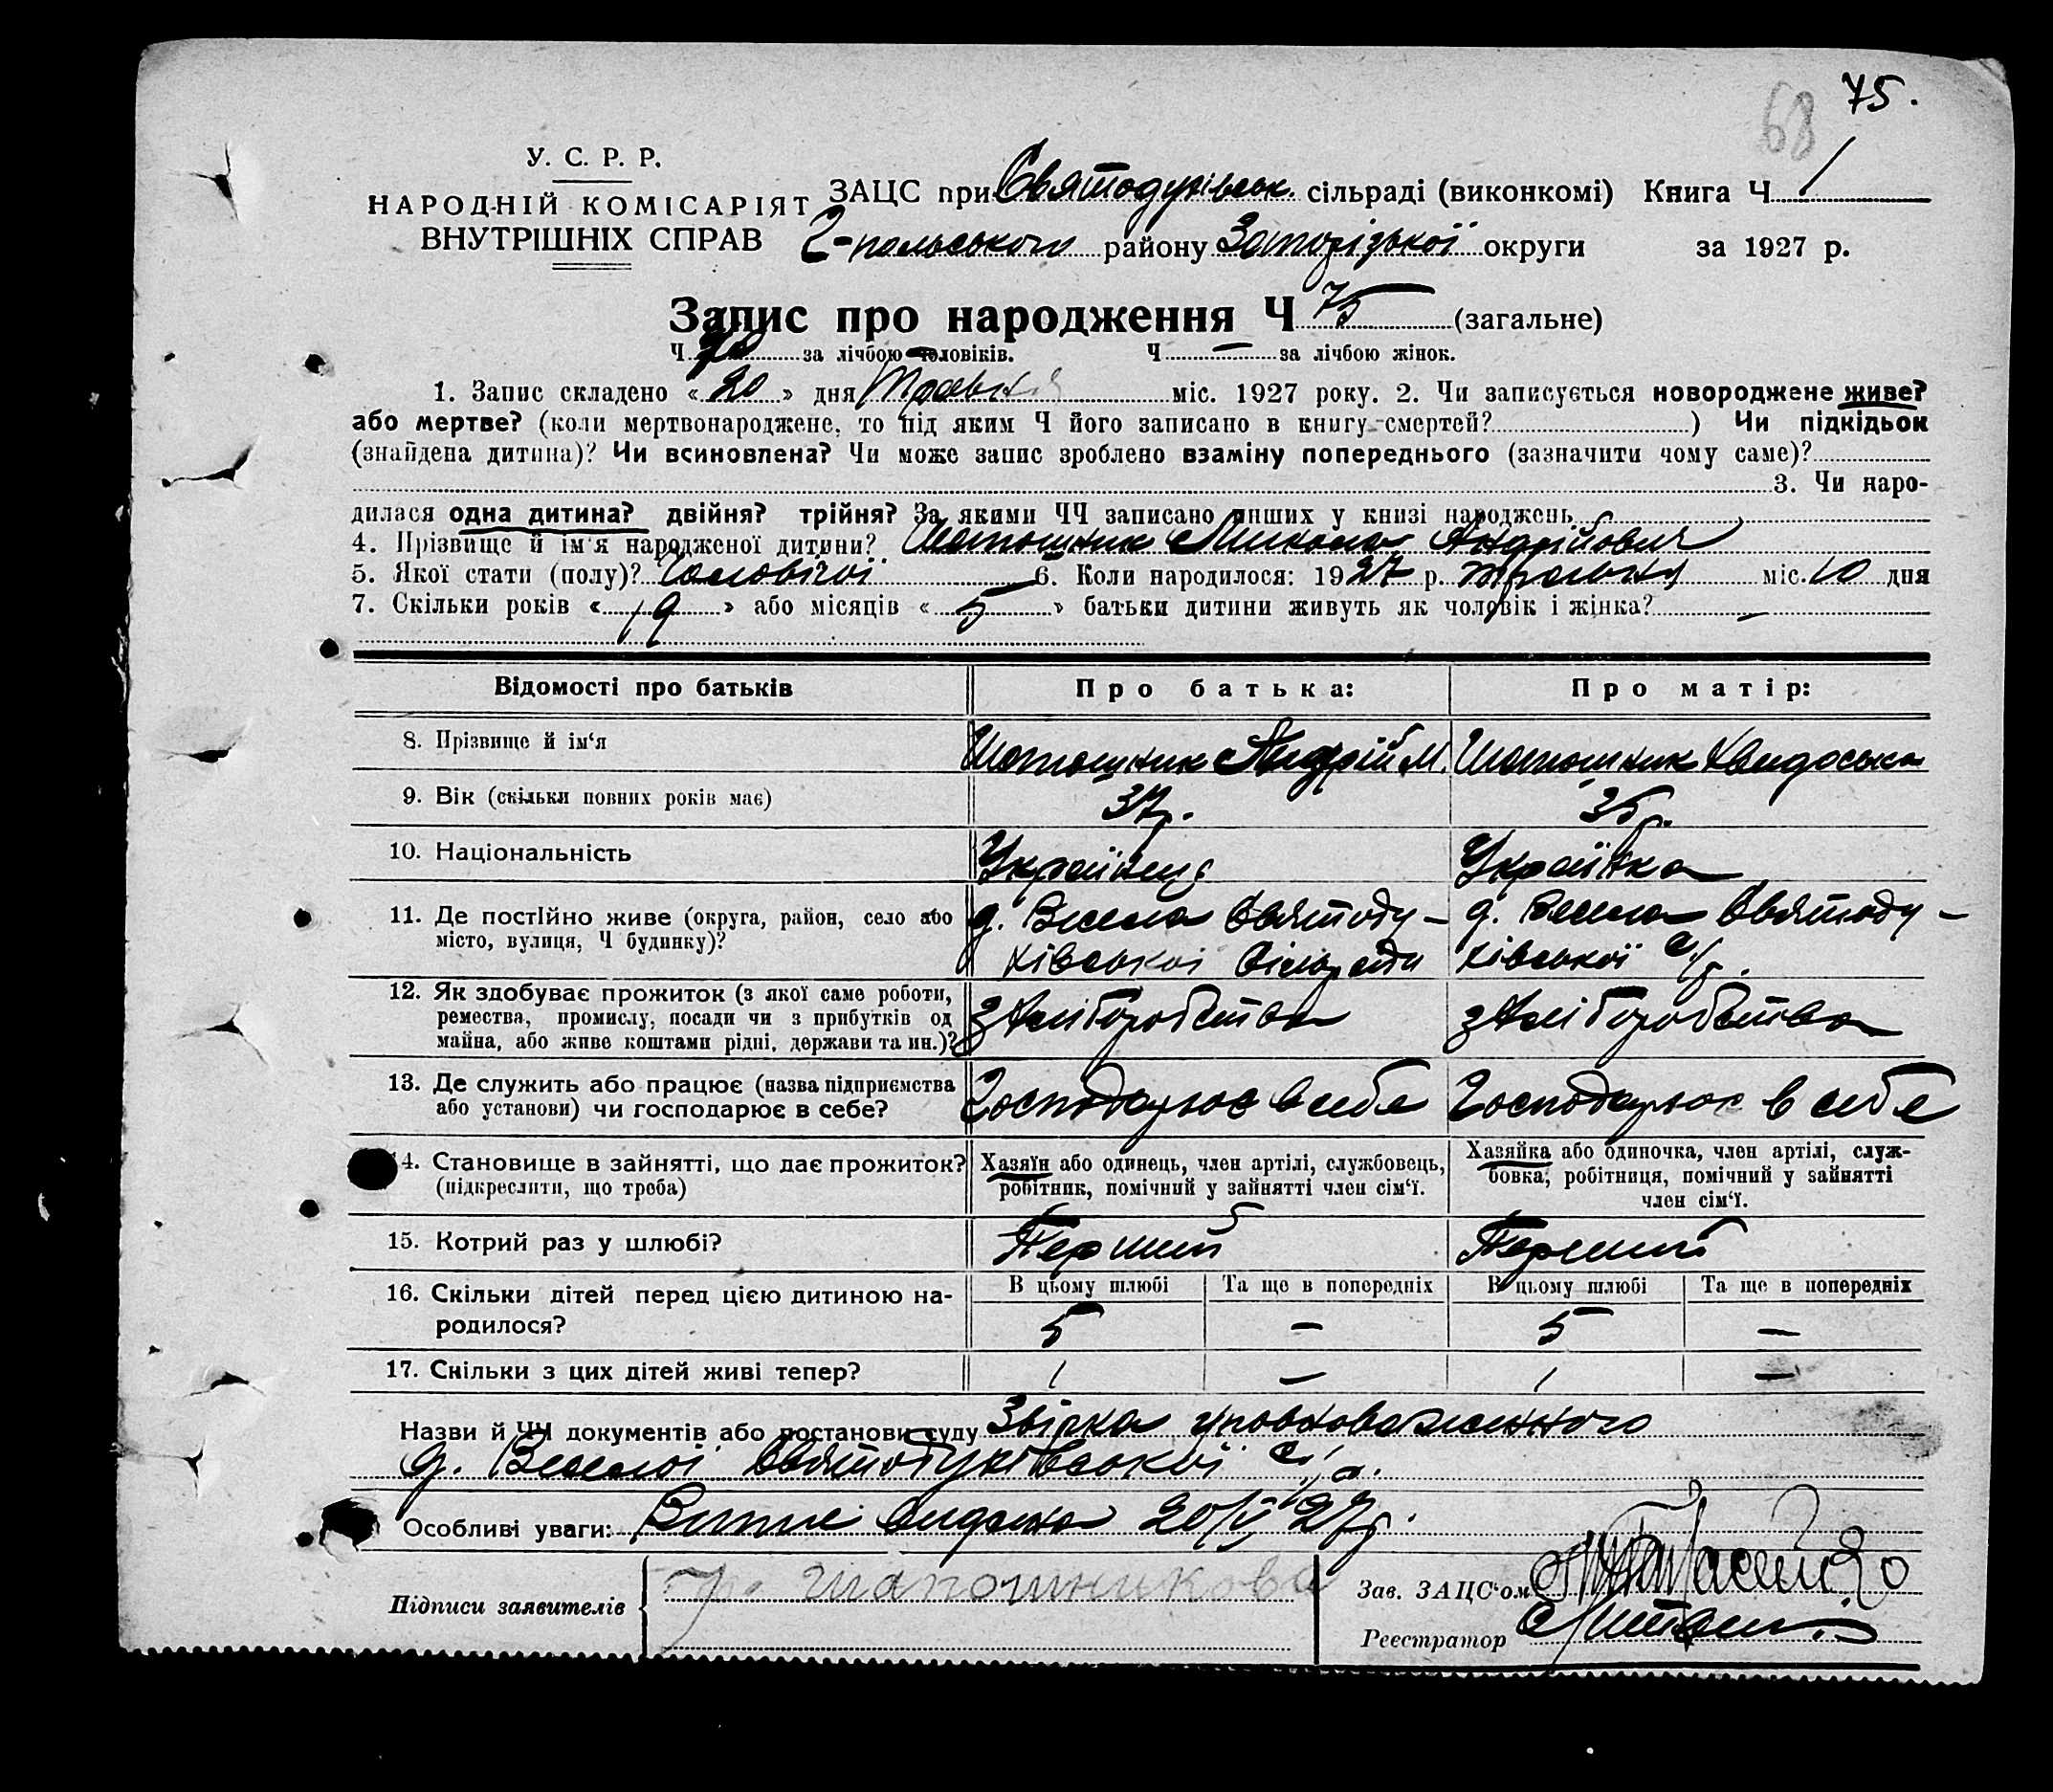 75.
68
У. С. Р. Р.
НАРОДНІЙ КОМІСАРІЯТ
ВНУТРІШНІХ СПРАВ
ЗАЦС при Святодухівськ. сільраді (виконкомі) Книга Ч 1
2-польського району Запорізької округи за 1927 р.
Запис про народження Ч 75 (загальне)
Ч за лічбою чоловіків. Ч — за лічбою жінок.
1. Запис складено « 20 » дня Травня міс. 1927 року. 2. Чи записується новороджене живе?
або мертве? (коли мертвонароджене, то під яким Ч його записано в книгу смертей? ) Чи підкідьок
(знайдена дитина)? Чи всиновлена? Чи може запис зроблено взаміну попереднього (зазначити чому саме)?
3. Чи наро-
дилася одна дитина? двійня? трійня? За якими ЧЧ записано инших у книзі народжень
4. Прізвище й ім'я народженої дитини? Шапошник Микола Андрійович
5. Якої стати (полу)? Чоловічої 6. Коли народилося: 1927 р. травня міс. 10 дня
7. Скільки років « 19 » або місяців « 5 » батьки дитини живуть як чоловік і жінка? —
Відомості про батьків Про батька: Про матір:
8. Прізвище й ім'я Шапошник Андрій М. Шапошник Хавдоська
9. Вік (скільки повних років має) 37 р. 35 р.
10. Національність Українец Українка
11. Де постійно живе (округа, район, село або місто, вулиця, Ч будинку)? д. Весела Святоду-
хівської Сільради д. Весела Святоду-
хівської с/р.
12. Як здобуває прожиток (з якої саме роботи, ремества, промислу, посади чи з прибутків од майна, або живе коштами рідні, держави та ин.)? з Хліборобства з Хліборобства
13. Де служить або працює (назва підприємства або установи) чи господарює в себе? Господарює в себе Господарює в себе
14. Становище в зайнятті, що дає прожиток? (підкреслити, що треба) Хазяїн або одинець, член артілі, службовець, робітник, помічний у зайнятті член сім'ї. Хазяйка або одиночка, член артілі, служ-
бовка, робітниця, помічний у зайнятті член сім'ї.
15. Котрий раз у шлюбі? Перший Перший
16. Скільки дітей перед цією дитиною на-
родилося? В цьому шлюбі Та ще в попередніх В цьому шлюбі Та ще в попередніх
5 — 5 —
17. Скільки з цих дітей живі тепер? 1 — 1 —
Назви й ЧЧ документів або постанови суду Звірка уповноваженного
д. Веселої Святодухівської с/р.
Особливі уваги: Випис видана 20/V 27 р.
Підписи заявителів Шапошникова
Зав. ЗАЦС'ом
Реєстратор